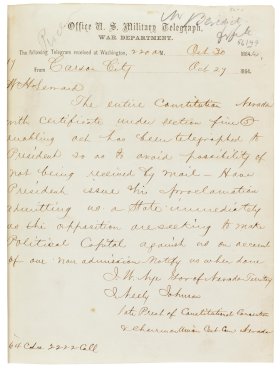 Office U. S. Military Telegraph,
WAR DEPARTMENT.
The following Telegram received at Washington, Oct 30 1864.
From Carson City Oct 29 1864.
W H Seward
The entire Constitution Nevada
with certificate under section five
enabling act has been telegraphed to
President so as to avoid possibility of
not being received by mail - Have
President issue his Proclamation
admitting us a State immediately
as the opposition are seeking to make
Political Capital against us on account
of our non admission Notify us when done
J W Nye Gov of Nevada Territory
J Neely Johnson
late Prest of Constitutional Convention
& Chairman Nevada
64 Cds 2222 Coll